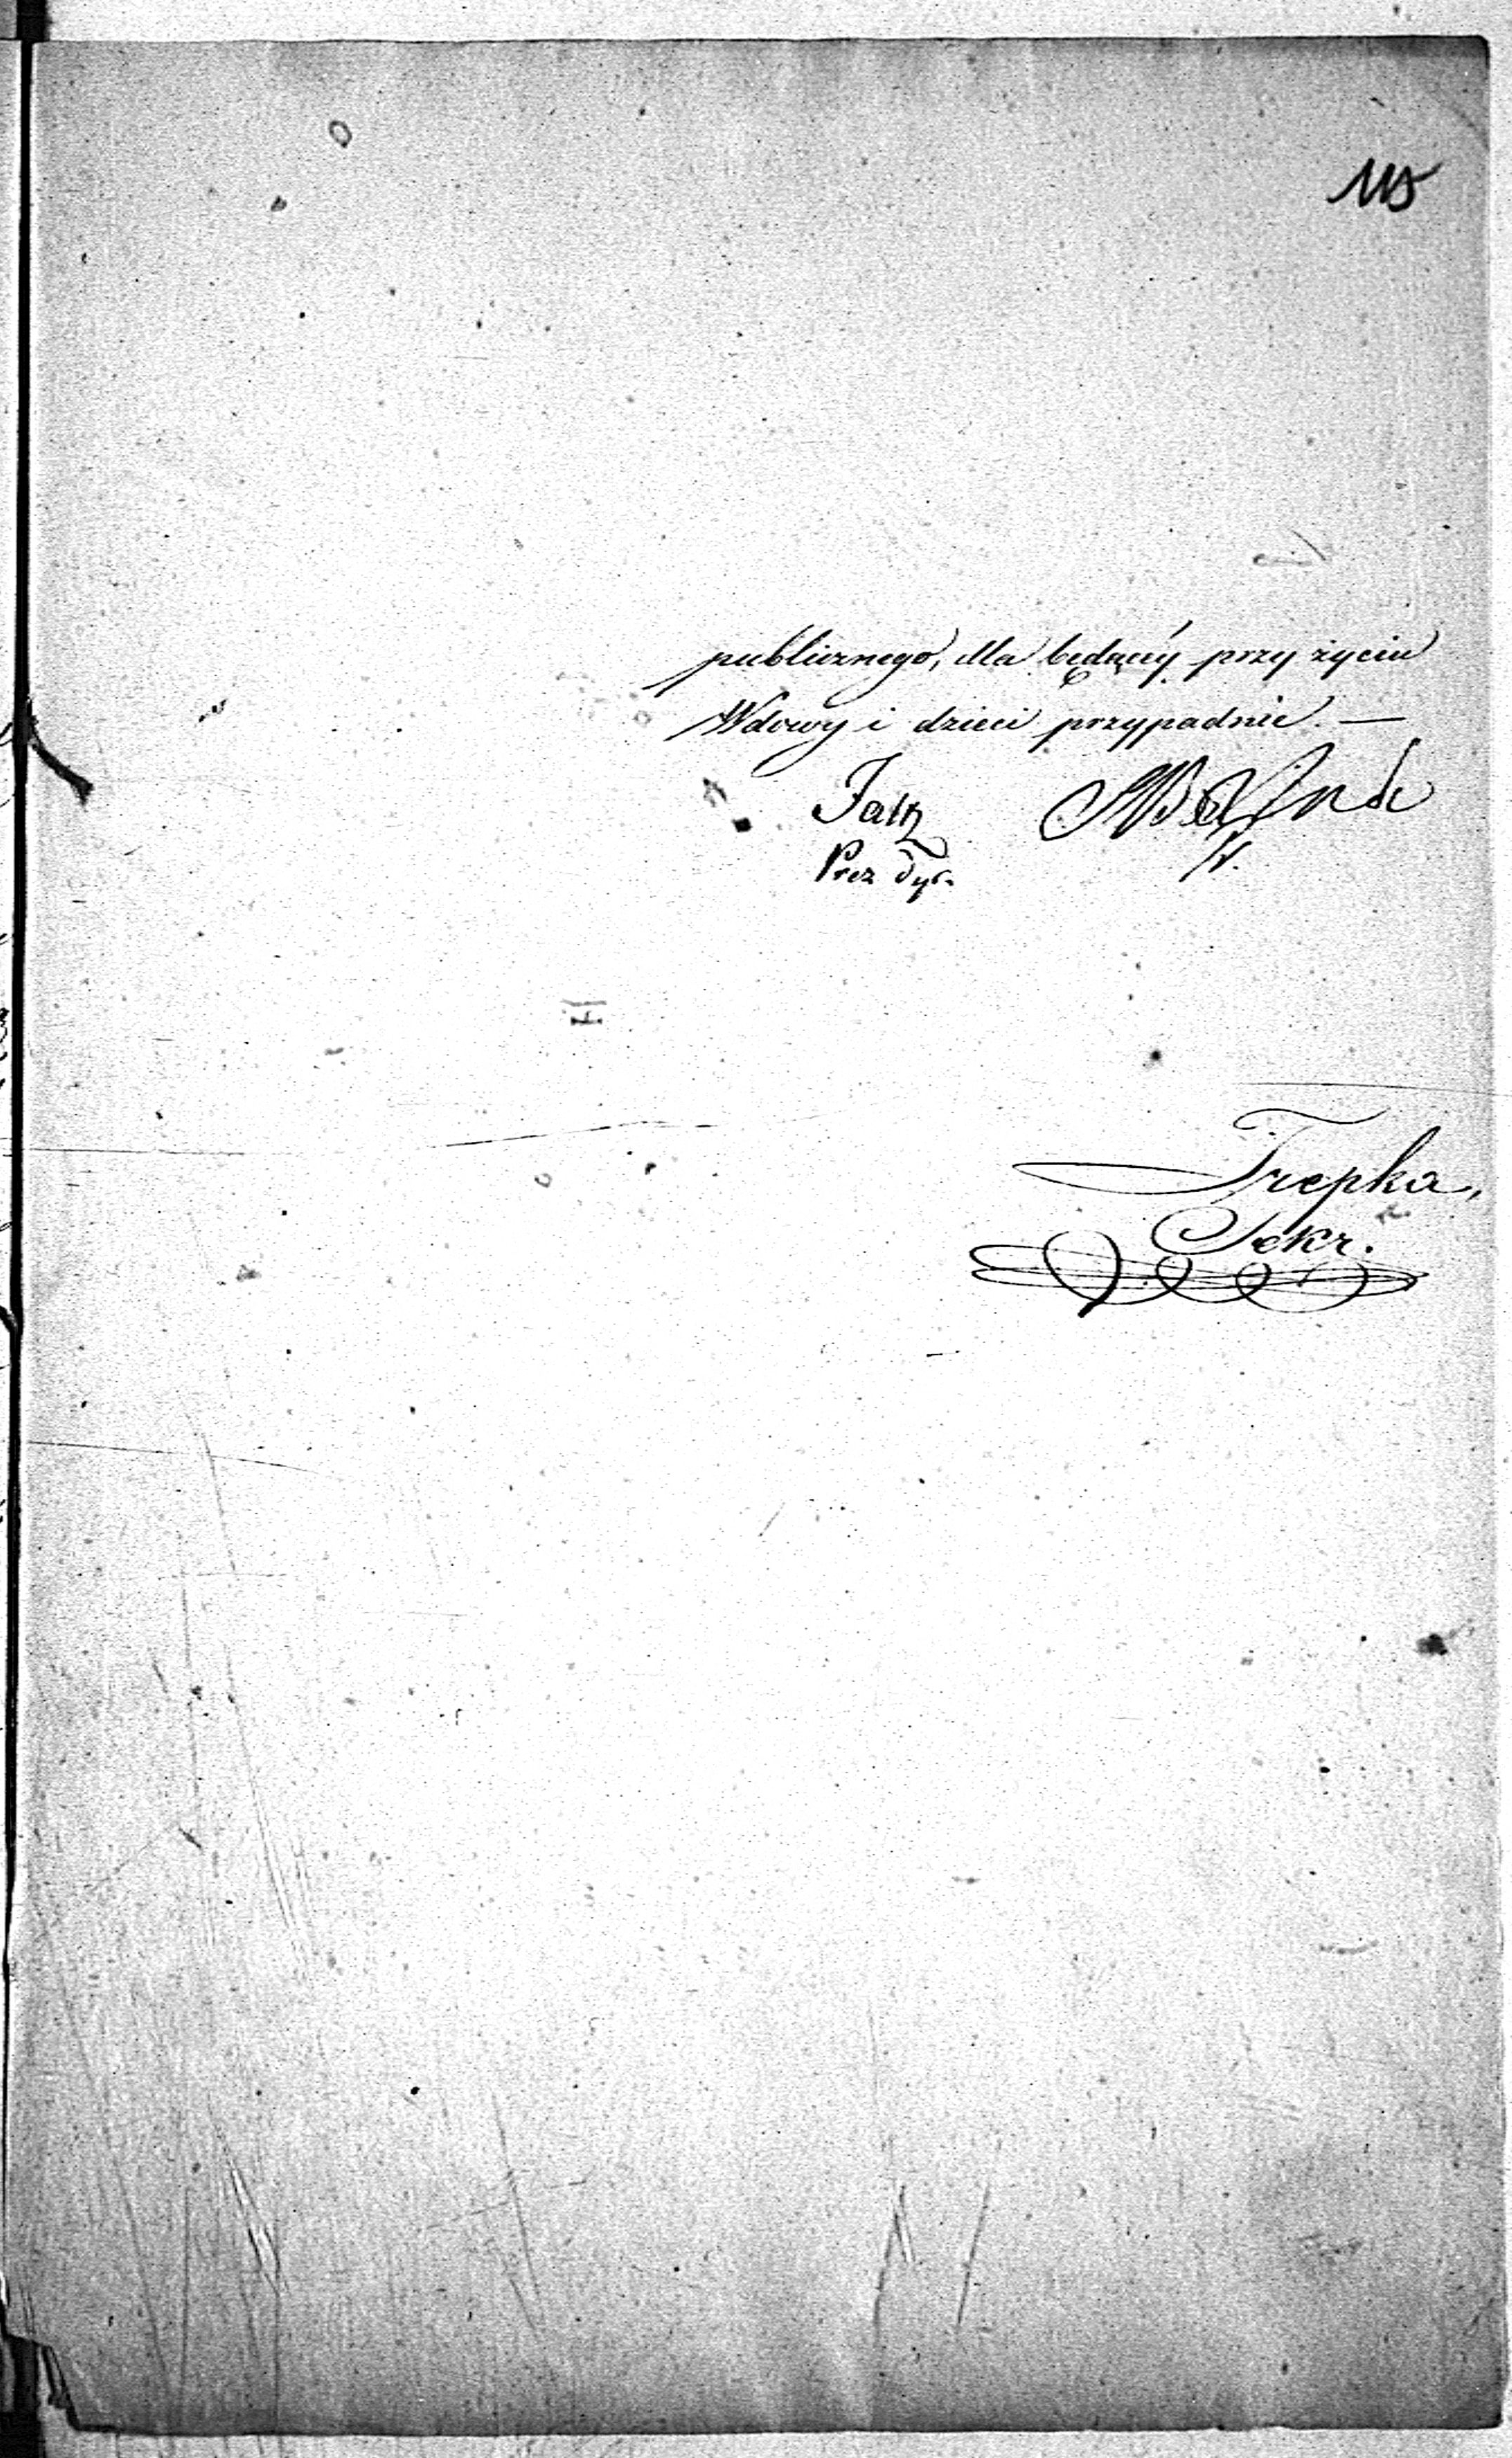 115
publicznego, dla będącéy przy życiu
Wdowy i dzieci przypadnie. —
Prez Dyr.
Trepka,
Sekr.